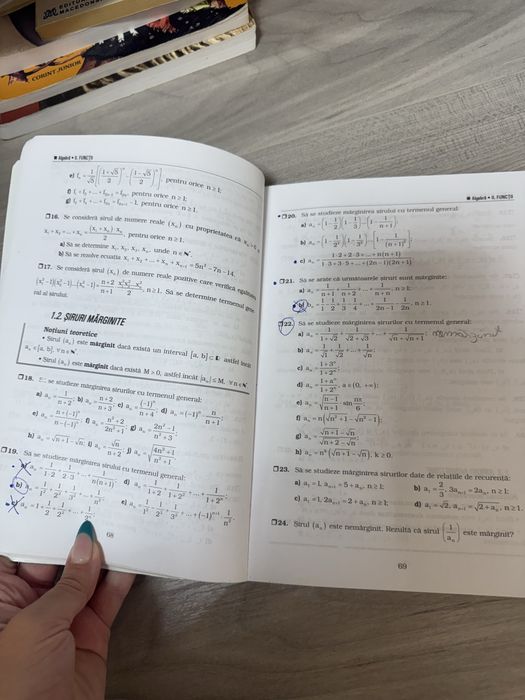 EDITURA
MACEDONIA
CORINT JUNIOR
■ Algebră • II. FUNCȚII
e) fₙ = 1/√5 [((1+√5)/2)ⁿ - ((1-√5)/2)ⁿ], pentru orice n ≥ 1;
pentru orice n ≥ 1;
pentru orice n ≥ 1.
□16. Se consideră șirul de numere reale (xₙ) cu proprietatea că
pentru orice n ≥ 1;
a) Să se determine x₁, x₂, x₃, xₙ, unde n ∈ ℕ*.
b) Să se rezolve ecuația x₁ + x₂ + ... + xₙ + xₙ₊₁ = 5n² - 7n - 14.
□17. Se consideră șirul (xₙ) de numere reale pozitive care verifică
n ≥ 1. Să se determine termenul
ral al șirului.
1.2. ȘIRURI MĂRGINITE
Noțiuni teoretice
• Șirul (aₙ) este mărginit dacă există un interval [a, b] ⊂ astfel încât
aₙ ∈ [a, b], ∀ n ∈ ℕ*.
• Șirul (aₙ) este mărginit dacă există M > 0, astfel încât |aₙ| ≤ M, ∀ n ∈ ℕ*.
□18. se studieze mărginirea șirurilor cu termenul general:
a) aₙ = 1/(n+2); b) aₙ = (n+2)/(n+3); c) aₙ = (-1)ⁿ/(n+4); d) aₙ = (-1)ⁿ · n/(n+1);
e) aₙ = (n+(-1)ⁿ)/(n-(-1)ⁿ); f) aₙ = (n²+2)/(2n²+1); g) aₙ = (2n²-1)/(n²+3);
h) aₙ = √(n+1) - √n; i) aₙ = √n/(n+2); j) aₙ = √((4n²+1)/(n²+1)).
□19. Să se studieze mărginirea șirului cu termenul general:
a) aₙ = 1/(1·2) + 1/(2·3) + ... + 1/(n(n+1)); d) aₙ = 1/(1+2) + 1/(1+2²) + ... + 1/(1+2ⁿ);
b) aₙ = 1/1² + 1/2² + 1/3² + ... + 1/n²; e) aₙ = 1/1² - 1/2² + 1/3² + ... + (-1)ⁿ⁺¹ · 1/n².
c) aₙ = 1 + 1/2 + 1/2² + ... + 1/2ⁿ;
68
■ Algebră • II. FUNCȚII
□20. Să se studieze mărginirea șirului cu termenul general:
a) aₙ = (1-1/2)(1-1/3)...(1-1/(n+1));
b) aₙ = (1-1/2²)(1-1/3²)...(1-1/(n+1)²);
c) aₙ = (1·2+2·3+...+n(n+1))/(1·3+3·5+...+(2n-1)(2n+1)).
□21. Să se arate că următoarele șiruri sunt mărginite:
a) aₙ = 1/(n+1) + 1/(n+2) + ... + 1/(n+n), n ≥ 1;
b) bₙ = 1/1 - 1/2 + 1/3 - 1/4 + ... + 1/(2n-1) - 1/2n, n ≥ 1.
□22. Să se studieze mărginirea șirurilor cu termenul general:
a) aₙ = 1/(1+√2) + 1/(√2+√3) + ... + 1/(√n+√(n+1)); nemărginit
b) aₙ = 1/√1 + 1/√2 + ... + 1/√n;
c) aₙ = (1+3ⁿ)/(1+2ⁿ);
d) aₙ = (1+aⁿ)/(1+2ⁿ), a ∈ (0, +∞);
e) aₙ = √((n-1)/(n+1)) · sin nπ/6;
f) aₙ = n(√(n²+1) - √(n²-1));
g) aₙ = (√(n+1)-√n)/(√(n+2)-√n);
h) aₙ = nᵏ(√(n+1) - √n), k ≥ 0.
□23. Să se studieze mărginirea șirurilor date de relațiile de recurență:
a) a₁ = 1, aₙ₊₁ = 5 + aₙ, n ≥ 1; b) a₁ = 2/3, 3aₙ₊₁ = 2aₙ, n ≥ 1;
c) a₁ = 1, 2aₙ₊₁ = 2 + aₙ, n ≥ 1; d) a₁ = √2, aₙ₊₁ = √(2+aₙ), n ≥ 1.
□24. Șirul (aₙ) este nemărginit. Rezultă că șirul (1/aₙ) este mărginit?
69